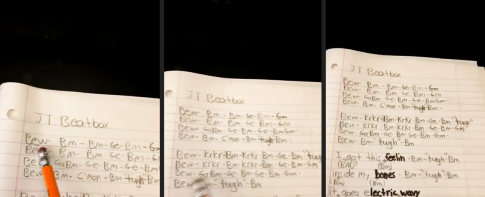 JT Beatbox
Bew Bm - Bm - Ge - Bm - Gm
Bew Bm - Bm Ge Bm - G
Bew Bm Ge - Bm
Bew Bm - C'mon - Bm - tugh - Bm
JT Beatbox
Bew Bm - Bm - Ge - Bm - Gm
Bew Bm - Bm Ge Bm - Gm
Bew GaBm Ge Bm - Ge - BmGm
Bew Bm - C'mon - Bm tugh Bm
Bew - KrKr - Bm - KrKr Bm - Ge - Bm "tugh"
Bew - KrKr Bm KrKr Bm - Ge - Bm Gm
Bew - GaBm Ge - Bm Ge Bm Gm
Bew - Bm - "tugh" - Bm
JT Beatbox
Bew Bm - Bm - Ge - Bm - Gm
Bew Bm - Bm Ge Bm - Gm
Bew GaBm Ge Bm - Ge - BmGm
Bew Bm - C'mon - Bm tugh - Bm
Bew - KrKr - Bm - KrKr Bm - Ge - Bm "tugh"
Bew - KrKr Bm KrKr Bm - Ge - Bm Gm
Bew GaBm Ge - Bm Ge Bm Gm
Bew Bm - "tugh" Bm
I got this feelin - Bm - "tugh" - Bm
(Bm) (Bm)
inside my bones - Bm - "tugh" - Bm
(Bm) (Bm)
it goes electric, wavy